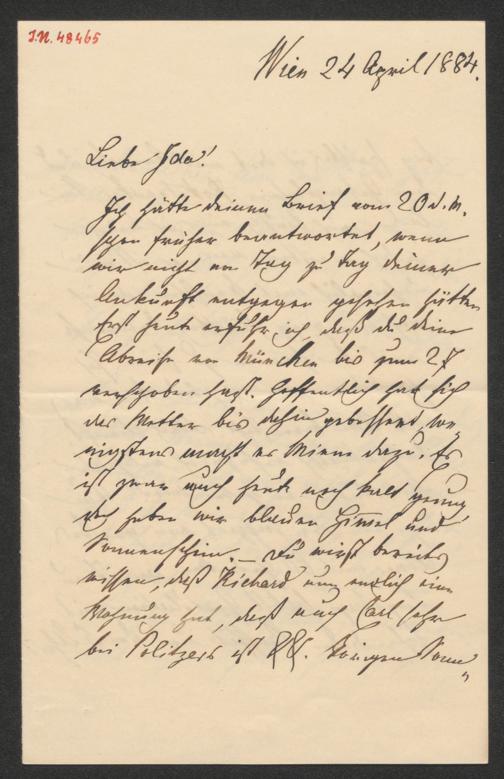 J.N. 48465
Wien 24 April 1884.
Liebe Ida!
Ich hätte deinen Brief vom 20 d. M.
schon früher beantwortet, wenn
wir nicht von Tag zu Tag deiner
Ankunft entgegen gesehen hätten
Erst heute erfuhr ich, daß du deine
Abreise von München bis zum 27
verschoben hast. Hoffentlich hat sich
das Wetter bis dahin gebessert, we
nigstens macht es Miene dazu. Es
ist zwar auch heute noch kalt genug
doch haben wir blauen Himmel und
Sonnenschein. – Du wirst bereits
wissen, daß Richard nun endlich eine
Wohnung hat, daß auch Carl sehr
bei Politzers ist &&. Vorigen Sonn„